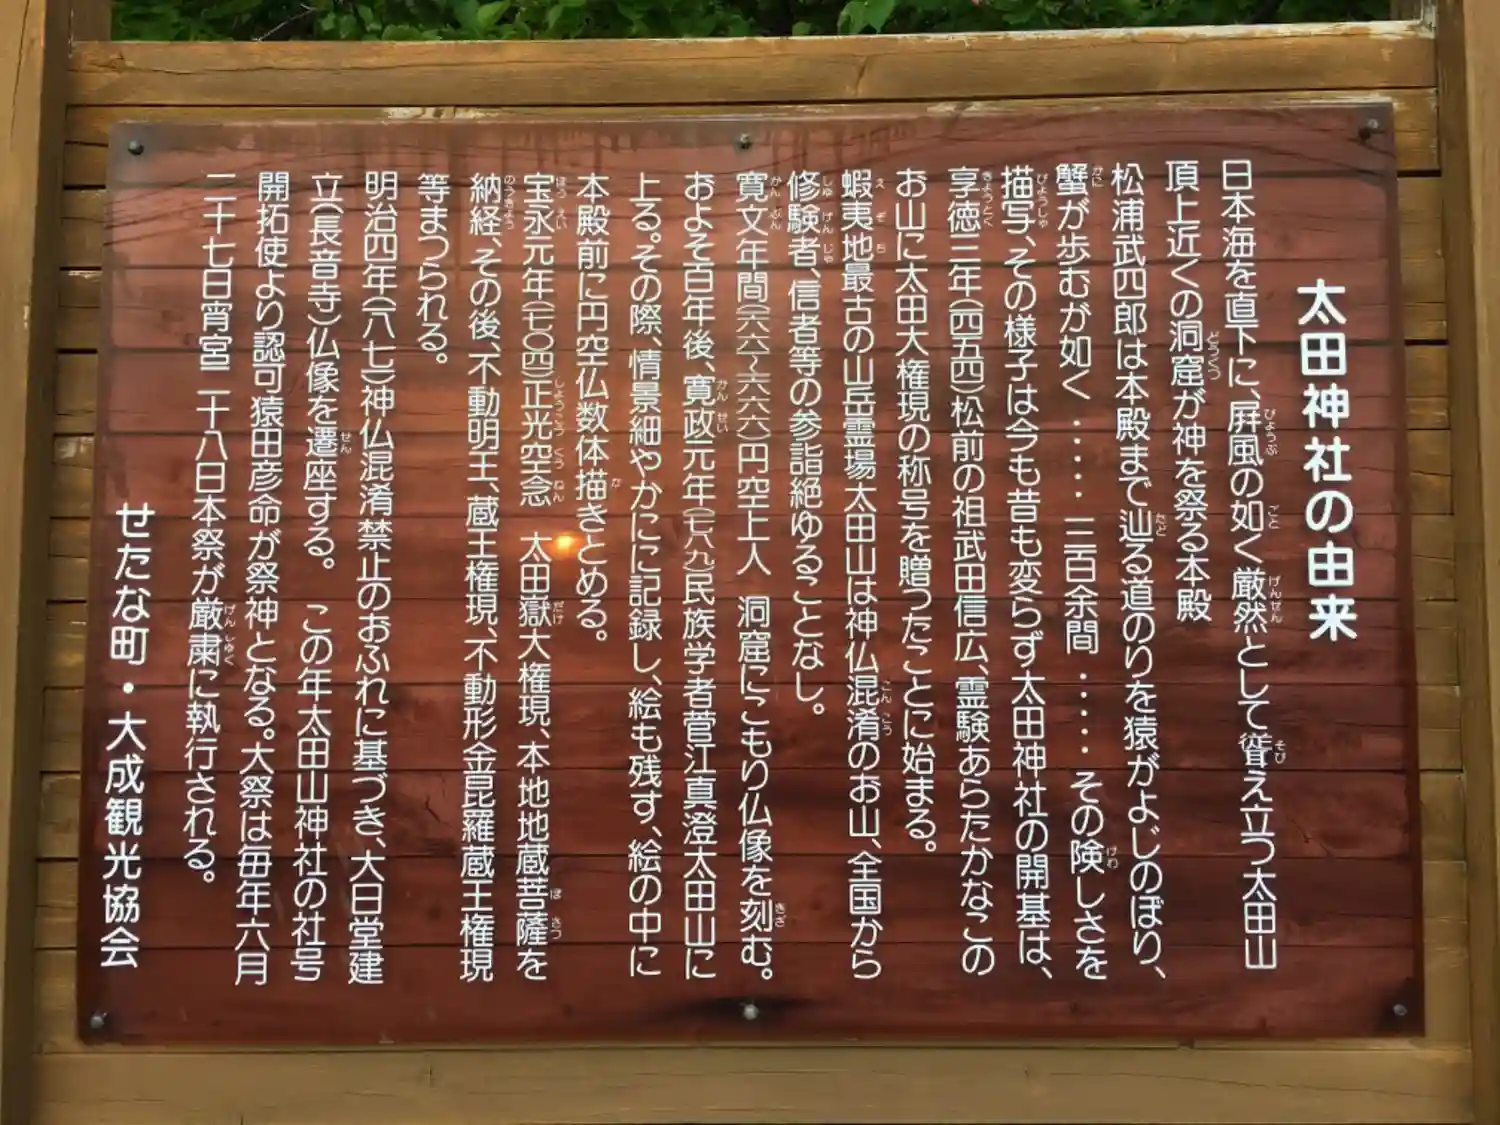 太田神社の由来
日本海を直下に、屛風の如く厳然として聳え立つ太田山
頂上近くの洞窟が神を祭る本殿
松浦武四郎は本殿まで辿る道のりを猿がよじのぼり、
蟹が歩むが如く・・・・・三百余間・・・・・その険しさを
描写、その様子は今も昔も変らず太田神社の開基は、
享徳三年(一四五四)松前の祖武田信広、霊験あらたかなこの
お山に太田大権現の称号を贈ったことに始まる。
蝦夷地最古の山岳霊場太田山は神仏混淆のお山、全国から
修験者、信者等の参詣絶ゆることなし。
寛文年間(一六六一〜一六六六)円空上人 洞窟にこもり仏像を刻む。
およそ百年後、寛政元年(一七八九)民族学者菅江真澄太田山に
上る。その際、情景細やかにに記録し、絵も残す、絵の中に
本殿前に円空仏数体描きとめる。
宝永元年(一七〇四)正光空念 太田嶽大権現、本地地蔵菩薩を
納経、その後、不動明王、蔵王権現、不動形金毘羅蔵王権現
等まつられる。
明治四年(一八七一)神仏混淆禁止のおふれに基づき、大日堂建
立(長音寺)仏像を遷座する。 この年太田山神社の社号
開拓使より認可猿田彦命が祭神となる。大祭は毎年六月
二十七日宵宮二十八日本祭が厳粛に執行される。
せたな町・大成観光協会